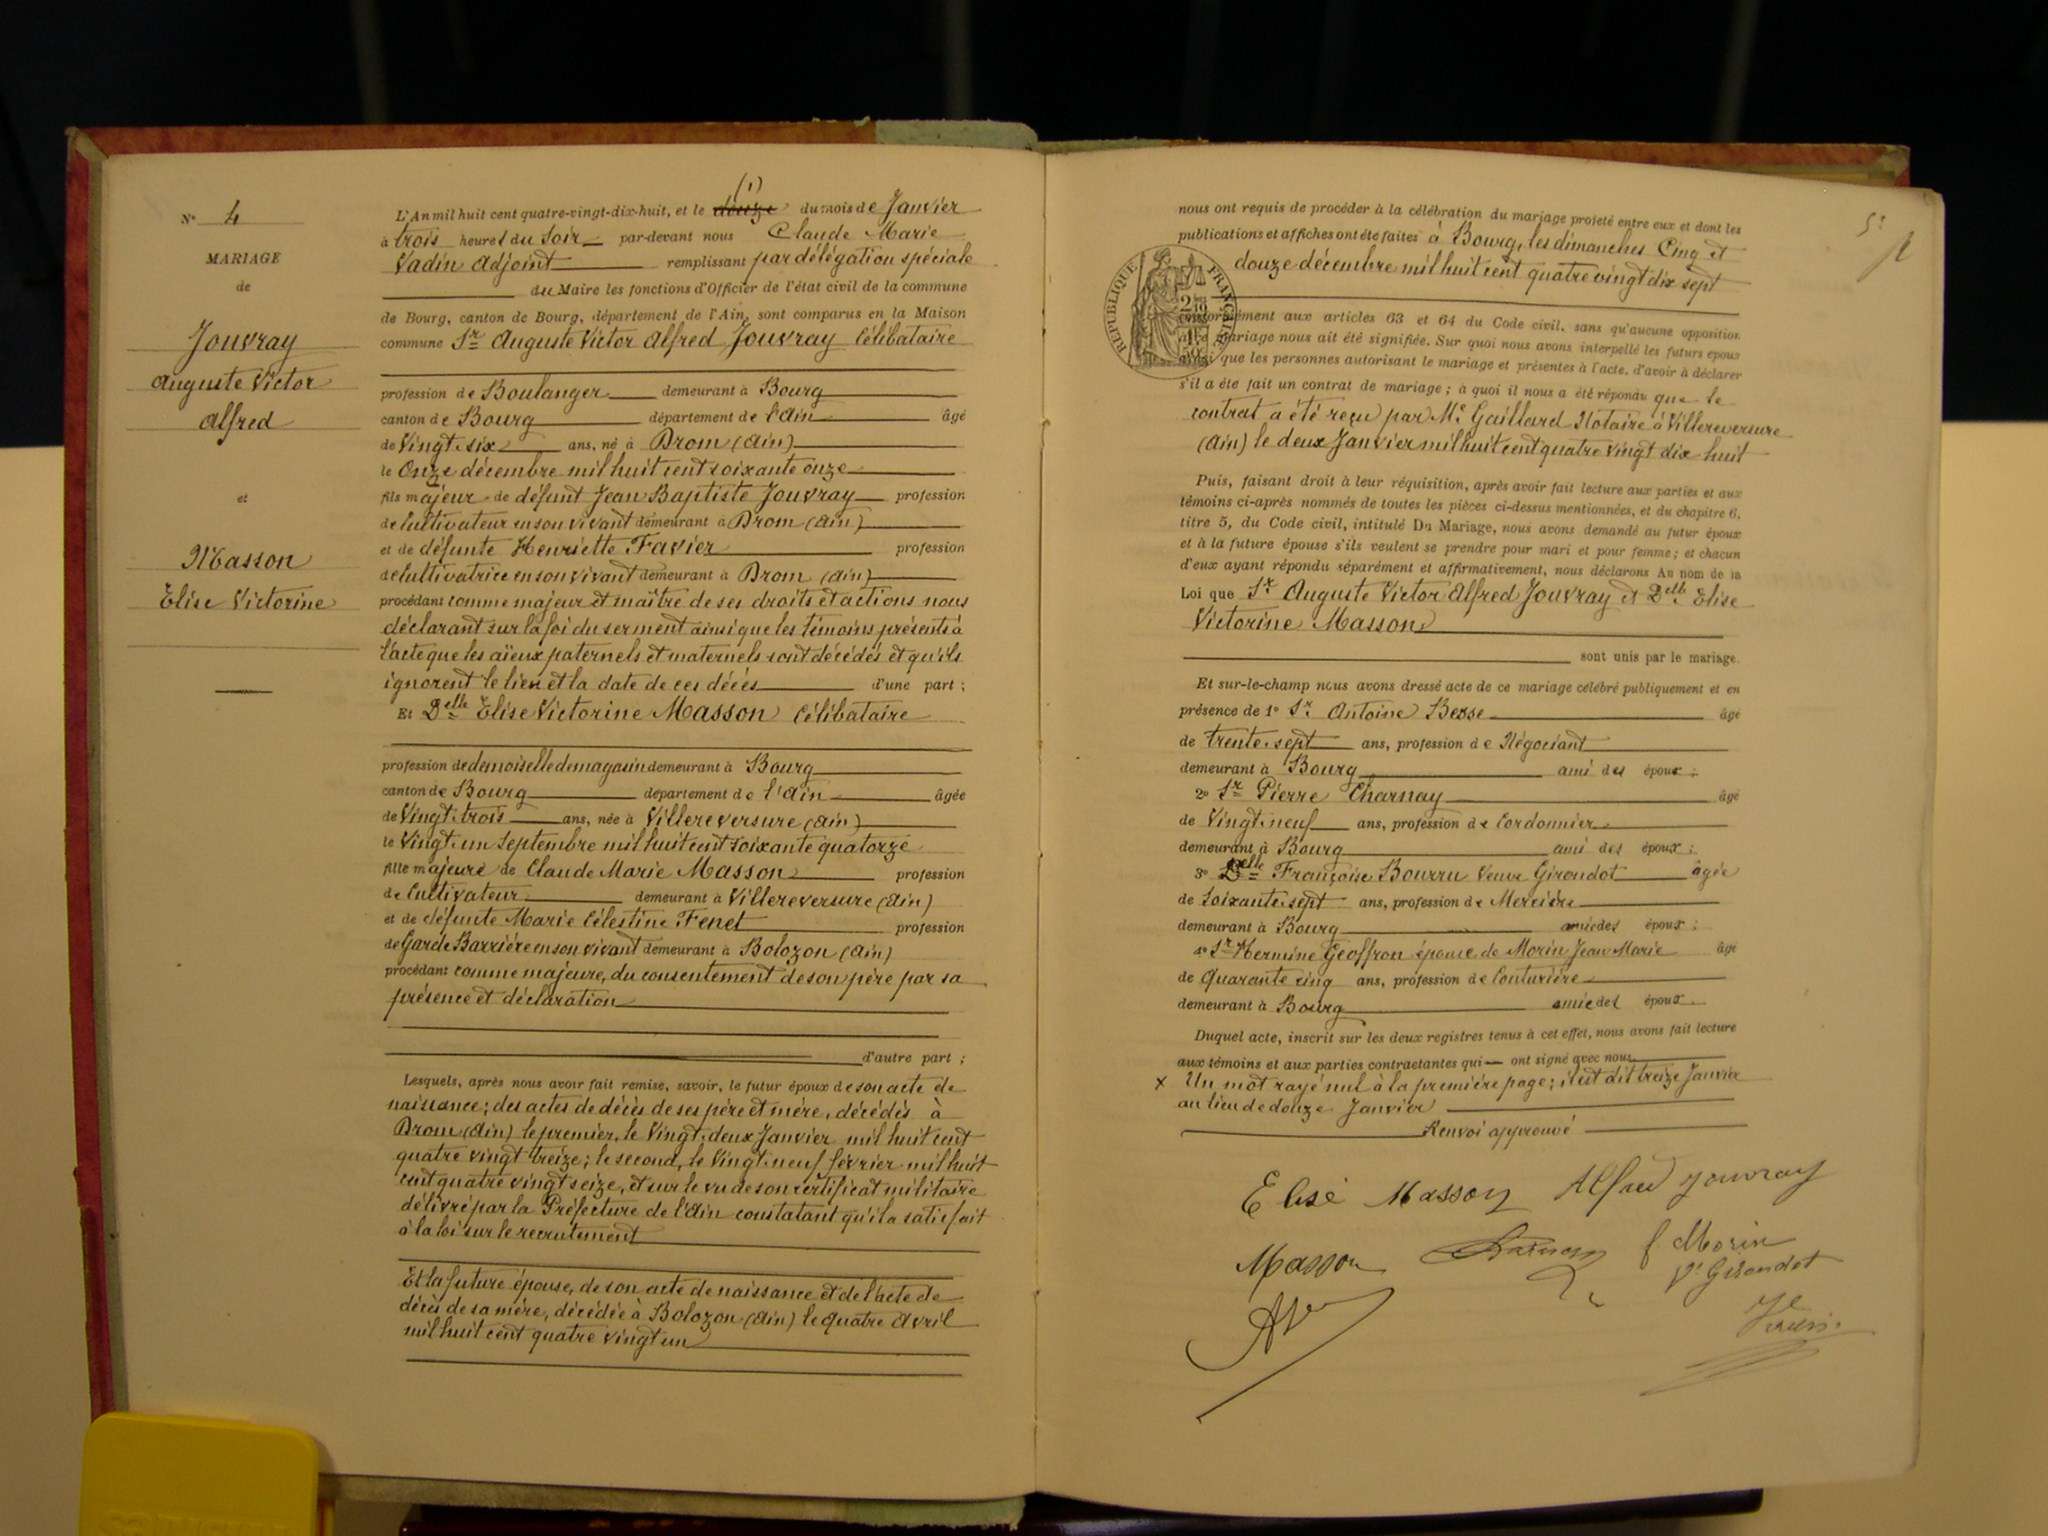 N° 4
MARIAGE
de
Jouvray
Auguste Victor
Alfred
et
Masson
Elise Victorine
(1)
L'An mil huit cent quatre-vingt-dix-huit, et le douze du mois de Janvier
à trois heures du Soir par-devant nous Claude Marie
Vadin Adjoint remplissant par délégation spéciale
du Maire les fonctions d'Officier de l'état civil de la commune
de Bourg, canton de Bourg, département de l'Ain, sont comparus en la Maison
commune Sr Auguste Victor Alfred Jouvray Célibataire
profession de Boulanger demeurant à Bourg
canton de Bourg département de l'Ain âgé
de Vingt-six ans, né à Drom (Ain)
le Onze décembre mil huit cent soixante onze
fils majeur de défunt Jean Baptiste Jouvray profession
de Cultivateur en son vivant demeurant à Drom (Ain)
et de défunte Henriette Favier profession
de Cultivatrice en son vivant demeurant à Drom (Ain)
procédant comme majeur et maître de ses droits et actions nous
déclarant sur la foi du serment ainsi que les témoins présents à
l'acte que les aïeux paternels et maternels sont décédés et qu'ils
ignorent le lieu et la date de ces décès d'une part ;
Et Delle Elise Victorine Masson Célibataire
profession de demoiselle de magasin demeurant à Bourg
canton de Bourg département de l'Ain âgée
de Vingt-trois ans, née à Villereversure (Ain)
le Vingt-un Septembre mil huit cent soixante quatorze
fille majeure de Claude Marie Masson profession
de Cultivateur demeurant à Villereversure (Ain)
et de défunte Marie Célestine Fenet profession
de Garde Barrière en son vivant demeurant à Bolozon (Ain)
procédant comme majeure, du consentement de son père par sa
présence et déclaration
d'autre part ;
Lesquels, après nous avoir fait remise, savoir, le futur époux de son acte de
naissance ; des actes de décès de ses père et mère, décédés à
Drom (Ain) le premier, le Vingt-deux Janvier mil huit cent
quatre vingt treize ; le second, le Vingt-neuf février mil huit
cent quatre vingt seize, et sur le vu de son certificat militaire
délivré par la Préfecture de l'Ain constatant qu'il a satisfait
à la loi sur le recrutement
Et la future épouse, de son acte de naissance et de l'acte de
décès de sa mère, décédée à Bolozon (Ain) le quatre Avril
mil huit cent quatre vingt un
nous ont requis de procéder à la célébration du mariage projeté entre eux et dont les
publications et affiches ont été faites à Bourg, les dimanches Cinq et
douze décembre mil huit cent quatre vingt dix sept
RÉPUBLIQUE FRANÇAISE
conformément aux articles 63 et 64 du Code civil, sans qu'aucune opposition
au mariage nous ait été signifiée. Sur quoi nous avons interpellé les futurs époux
ainsi que les personnes autorisant le mariage et présentes à l'acte, d'avoir à déclarer
s'il a été fait un contrat de mariage ; à quoi il nous a été répondu que le
contrat a été reçu par Me Gaillard Notaire à Villereversure
(Ain) le deux Janvier mil huit cent quatre vingt dix huit
Puis, faisant droit à leur réquisition, après avoir fait lecture aux parties et aux
témoins ci-après nommés de toutes les pièces ci-dessus mentionnées, et du chapitre 6,
titre 5, du Code civil, intitulé Du Mariage, nous avons demandé au futur époux
et à la future épouse s'ils veulent se prendre pour mari et pour femme ; et chacun
d'eux ayant répondu séparément et affirmativement, nous déclarons Au nom de la
Loi que Sr Auguste Victor Alfred Jouvray et Delle Elise
Victorine Masson
sont unis par le mariage.
Et sur-le-champ nous avons dressé acte de ce mariage célébré publiquement et en
présence de 1° Sr Antoine Besse âgé
de trente-sept ans, profession de Négociant
demeurant à Bourg ami des époux ;
2° Sr Pierre Charnay âgé
de Vingt-neuf ans, profession de Cordonnier
demeurant à Bourg ami des époux ;
3° Delle Françoise Bourru Veuve Girondot âgée
de Soixante-sept ans, profession de Mercière
demeurant à Bourg amie des époux ;
4° Sr Hermine Geoffron épouse de Morin Jean Marie âgé
de quarante cinq ans, profession de Couturière
demeurant à Bourg amie des époux.
Duquel acte, inscrit sur les deux registres tenus à cet effet, nous avons fait lecture
aux témoins et aux parties contractantes qui ont signé avec nous
x Un mot rayé nul à la première page ; il est dit treize Janvier
au lieu de douze Janvier
Renvoi approuvé
Elise Masson Alfred Jouvray
Masson Charnay f Morin
Ve Girondot